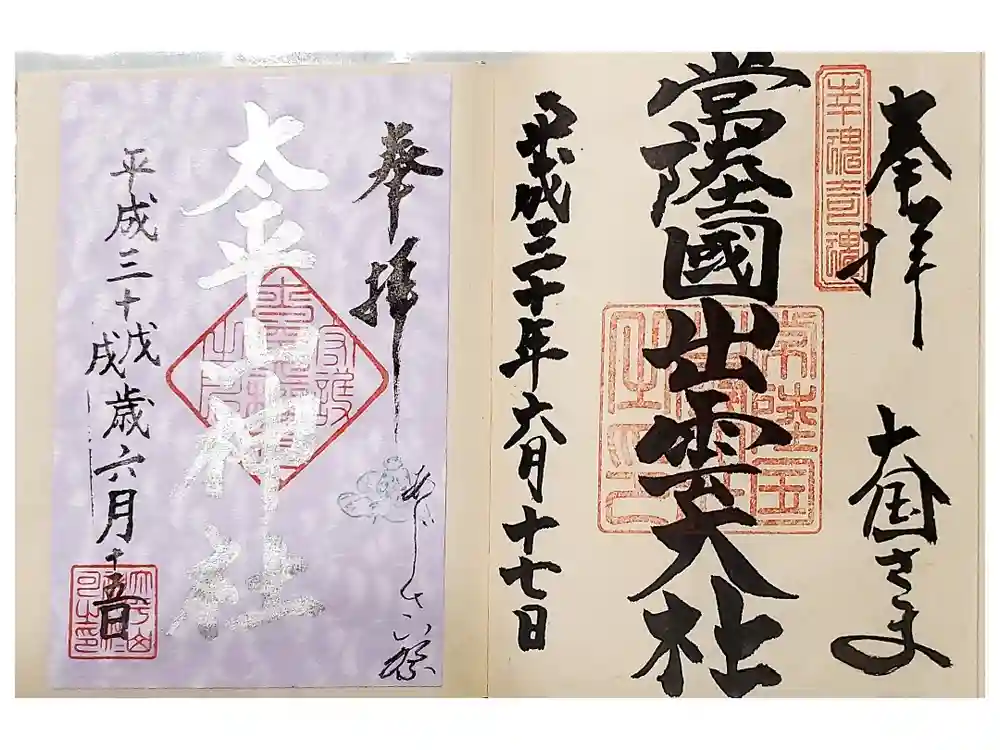 奉拝
幸魂奇魂
大国さま
常陸國出雲大社
平成三十年六月十七日
奉拝
あじさい祭
太平山神社
平成三十戊戌歳六月十五日